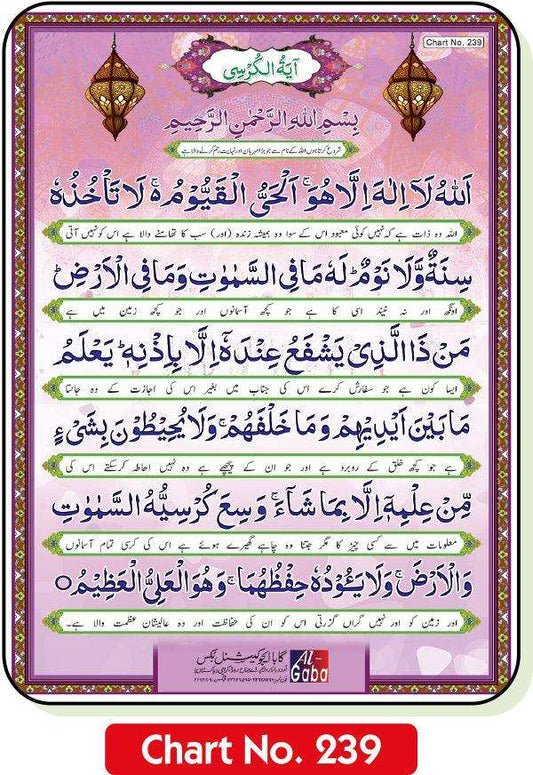 Chart No. 239
آیة الکرسی
بِسْمِ اللهِ الرَّحْمٰنِ الرَّحِیْمِ
شروع کرتا ہوں اللہ کے نام سے جو بڑا مہربان اور نہایت رحم کرنے والا ہے
اَللهُ لَاۤ اِلٰهَ اِلَّا هُوَۚ اَلْحَیُّ الْقَیُّوْمُ ەۚ لَا تَاْخُذُهٗ
اللہ وہ ذات ہے کہ نہیں کوئی معبود اس کے سوا وہ ہمیشہ زندہ (اور) سب کا تھامنے والا ہے اس کو نہیں آتی
سِنَةٌ وَّلَا نَوْمٌؕ لَهٗ مَا فِی السَّمٰوٰتِ وَمَا فِی الْاَرْضِؕ
اونگھ اور نہ نیند اسی کا ہے جو کچھ آسمانوں اور جو کچھ زمین میں ہے
مَنْ ذَا الَّذِیْ یَشْفَعُ عِنْدَهٗۤ اِلَّا بِاِذْنِهٖؕ یَعْلَمُ
ایسا کون ہے جو سفارش کرے اس کی جناب میں بغیر اس کی اجازت کے وہ جانتا
مَا بَیْنَ اَیْدِیْهِمْ وَمَا خَلْفَهُمْۚ وَلَا یُحِیْطُوْنَ بِشَیْءٍ
ہے جو کچھ خلق کے روبرو ہے اور جو ان کے پیچھے ہے وہ نہیں احاطہ کرسکتے اس کی
مِّنْ عِلْمِهٖۤ اِلَّا بِمَا شَآءَۚ وَسِعَ كُرْسِیُّهُ السَّمٰوٰتِ
معلومات میں سے کسی چیز کا مگر جتنا وہ چاہے گھیرے ہوئے ہے اس کی کرسی تمام آسمانوں
وَالْاَرْضَۚ وَلَا یَـُٔوْدُهٗ حِفْظُهُمَاۚ وَهُوَ الْعَلِیُّ الْعَظِیْمُ○
اور زمین کو اور نہیں گراں گزرتی اس کو ان کی حفاظت اور وہ عالیشان عظمت والا ہے۔
گابا ایجوکیشنل بکس
AL-Gaba
Chart No. 239